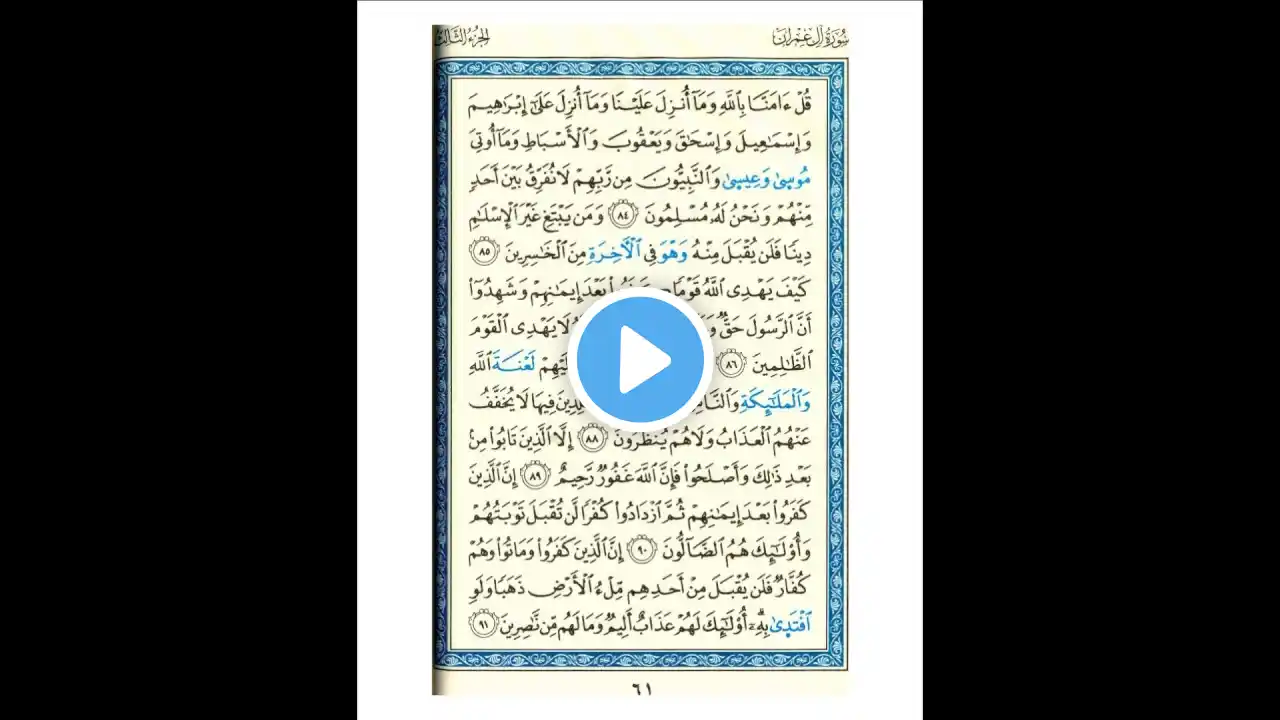 سُورَةُ آلِ عِمْرَان
الجُزْءُ الثَّالِثُ
قُلْ ءَامَنَّا بِٱللَّهِ وَمَآ أُنزِلَ عَلَيْنَا وَمَآ أُنزِلَ عَلَىٰٓ إِبْرَٰهِيمَ
وَإِسْمَٰعِيلَ وَإِسْحَٰقَ وَيَعْقُوبَ وَٱلْأَسْبَاطِ وَمَآ أُوتِيَ
مُوسِىٰ وَعِيسِىٰ وَٱلنَّبِيُّونَ مِن رَّبِّهِمْ لَا نُفَرِّقُ بَيْنَ أَحَدٍ
مِّنْهُمْ وَنَحْنُ لَهُۥ مُسْلِمُونَ ٨٤ وَمَن يَبْتَغِ غَيْرَ ٱلْإِسْلَٰمِ
دِينًا فَلَن يُقْبَلَ مِنْهُ وَهْوَ فِي ٱلْأَخِرَةِ مِنَ ٱلْخَٰسِرِينَ ٨٥
كَيْفَ يَهْدِي ٱللَّهُ قَوْمًا بَعْدَ إِيمَٰنِهِمْ وَشَهِدُوٓا۟
أَنَّ ٱلرَّسُولَ حَقٌّ لَا يَهْدِي ٱلْقَوْمَ
ٱلظَّٰلِمِينَ ٨٦ لَعْنَةَ ٱللَّهِ
وَٱلْمَلَٰٓئِكَةِ فِيهَا لَا يُخَفَّفُ
عَنْهُمُ ٱلْعَذَابُ وَلَا هُمْ يُنظَرُونَ ٨٨ إِلَّا ٱلَّذِينَ تَابُوا۟ مِنۢ
بَعْدِ ذَٰلِكَ وَأَصْلَحُوا۟ فَإِنَّ ٱللَّهَ غَفُورٌ رَّحِيمٌ ٨٩ إِنَّ ٱلَّذِينَ
كَفَرُوا۟ بَعْدَ إِيمَٰنِهِمْ ثُمَّ ٱزْدَادُوا۟ كُفْرًا لَّن تُقْبَلَ تَوْبَتُهُمْ
وَأُو۟لَٰٓئِكَ هُمُ ٱلضَّآلُّونَ ٩٠ إِنَّ ٱلَّذِينَ كَفَرُوا۟ وَمَاتُوا۟ وَهُمْ
كُفَّارٌ فَلَن يُقْبَلَ مِنْ أَحَدِهِم مِّلْءُ ٱلْأَرْضِ ذَهَبًا وَلَوِ
ٱفْتَدِىٰ بِهِۦٓ أُو۟لَٰٓئِكَ لَهُمْ عَذَابٌ أَلِيمٌ وَمَا لَهُم مِّن نَّٰصِرِينَ ٩١
٦١